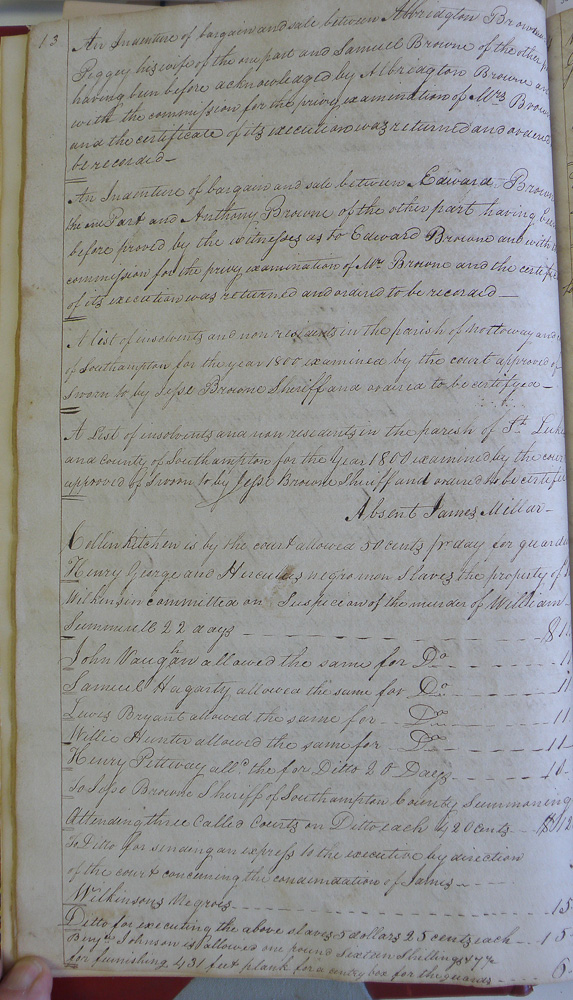 13
An Indenture of bargain and sale between Albridgton Browne
Peggey his wife of the one part and Samuel Browne of the other
having been before acknowledged by Albridgton Browne and
with the commission for the privy examination of Mrs Browne
and the certificate of its execution was returned and ordered
be recorded
An Indenture of bargain and sale between Edward Browne
the one Part and Anthony Browne of the other part having been
before proved by the witnesses as to Edward Browne and with
commission for the privy examination of Mrs Browne and the certif
of its execution was returned and ordered to be recorded
A list of insolvents and non residents in the parish of Nottoway and
of Southampton for the year 1800 examined by the court approved of
Sworn to by Jesse Browne Sheriff and ordered to be certifyed
A List of insolvents and non residents in the parish of St Luke
and County of Southampton for the Year 1800 examined by the court
approved of Sworn to by Jesse Browne Sheriff and ordered to be certifi
Absent James Millar
Collin Kitchen is by the court allowed 50 cents pr day for guard
Henry George and Hercules negro men Slaves the property of
Wilkinson committed on Suspecion of the murder of William
Summerell 22 days $11
John Vaughan allowed the same for Do 11
Samuel Hagarty allowed the same for Do 11
Lewis Bryant allowed the same for Do 11
Willie Hunter allowed the same for Do 11
Henry Pitteway alld the for Ditto 20 Days 10
To Jesse Browne Sheriff of Southampton County Summoning
Attending three Called Courts on Ditto each 420 cents $12
To Ditto for sending an express to the executive by direction
of the court concerning the condemnation of James
Wilkinsons Negroes 15
Ditto for executing the above slaves 5 dollars 25 cents each 15
Benja Johnson is allowed one pound Sixteen Shillings
for furnishing 431 feet plank for a centry box for the guards 6